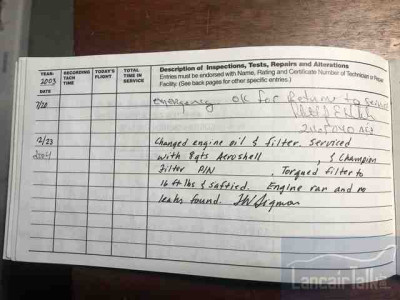 YEAR: 2003 RECORDING TACH TIME TODAY'S FLIGHT TOTAL TIME IN SERVICE Description of Inspections, Tests, Repairs and Alterations
Entries must be endorsed with Name, Rating and Certificate Number of Technician or Repair
Facility. (See back pages for other specific entries.)
DATE
7/20 emergency ok for Return to service
12/23 Changed engine oil & filter. Serviced
2004 with 8qts Aeroshell , & Champion
Filter P/N . Torqued filter to
16 ft lbs & saftied. Engine ran and no
leaks found.
LancairTalk